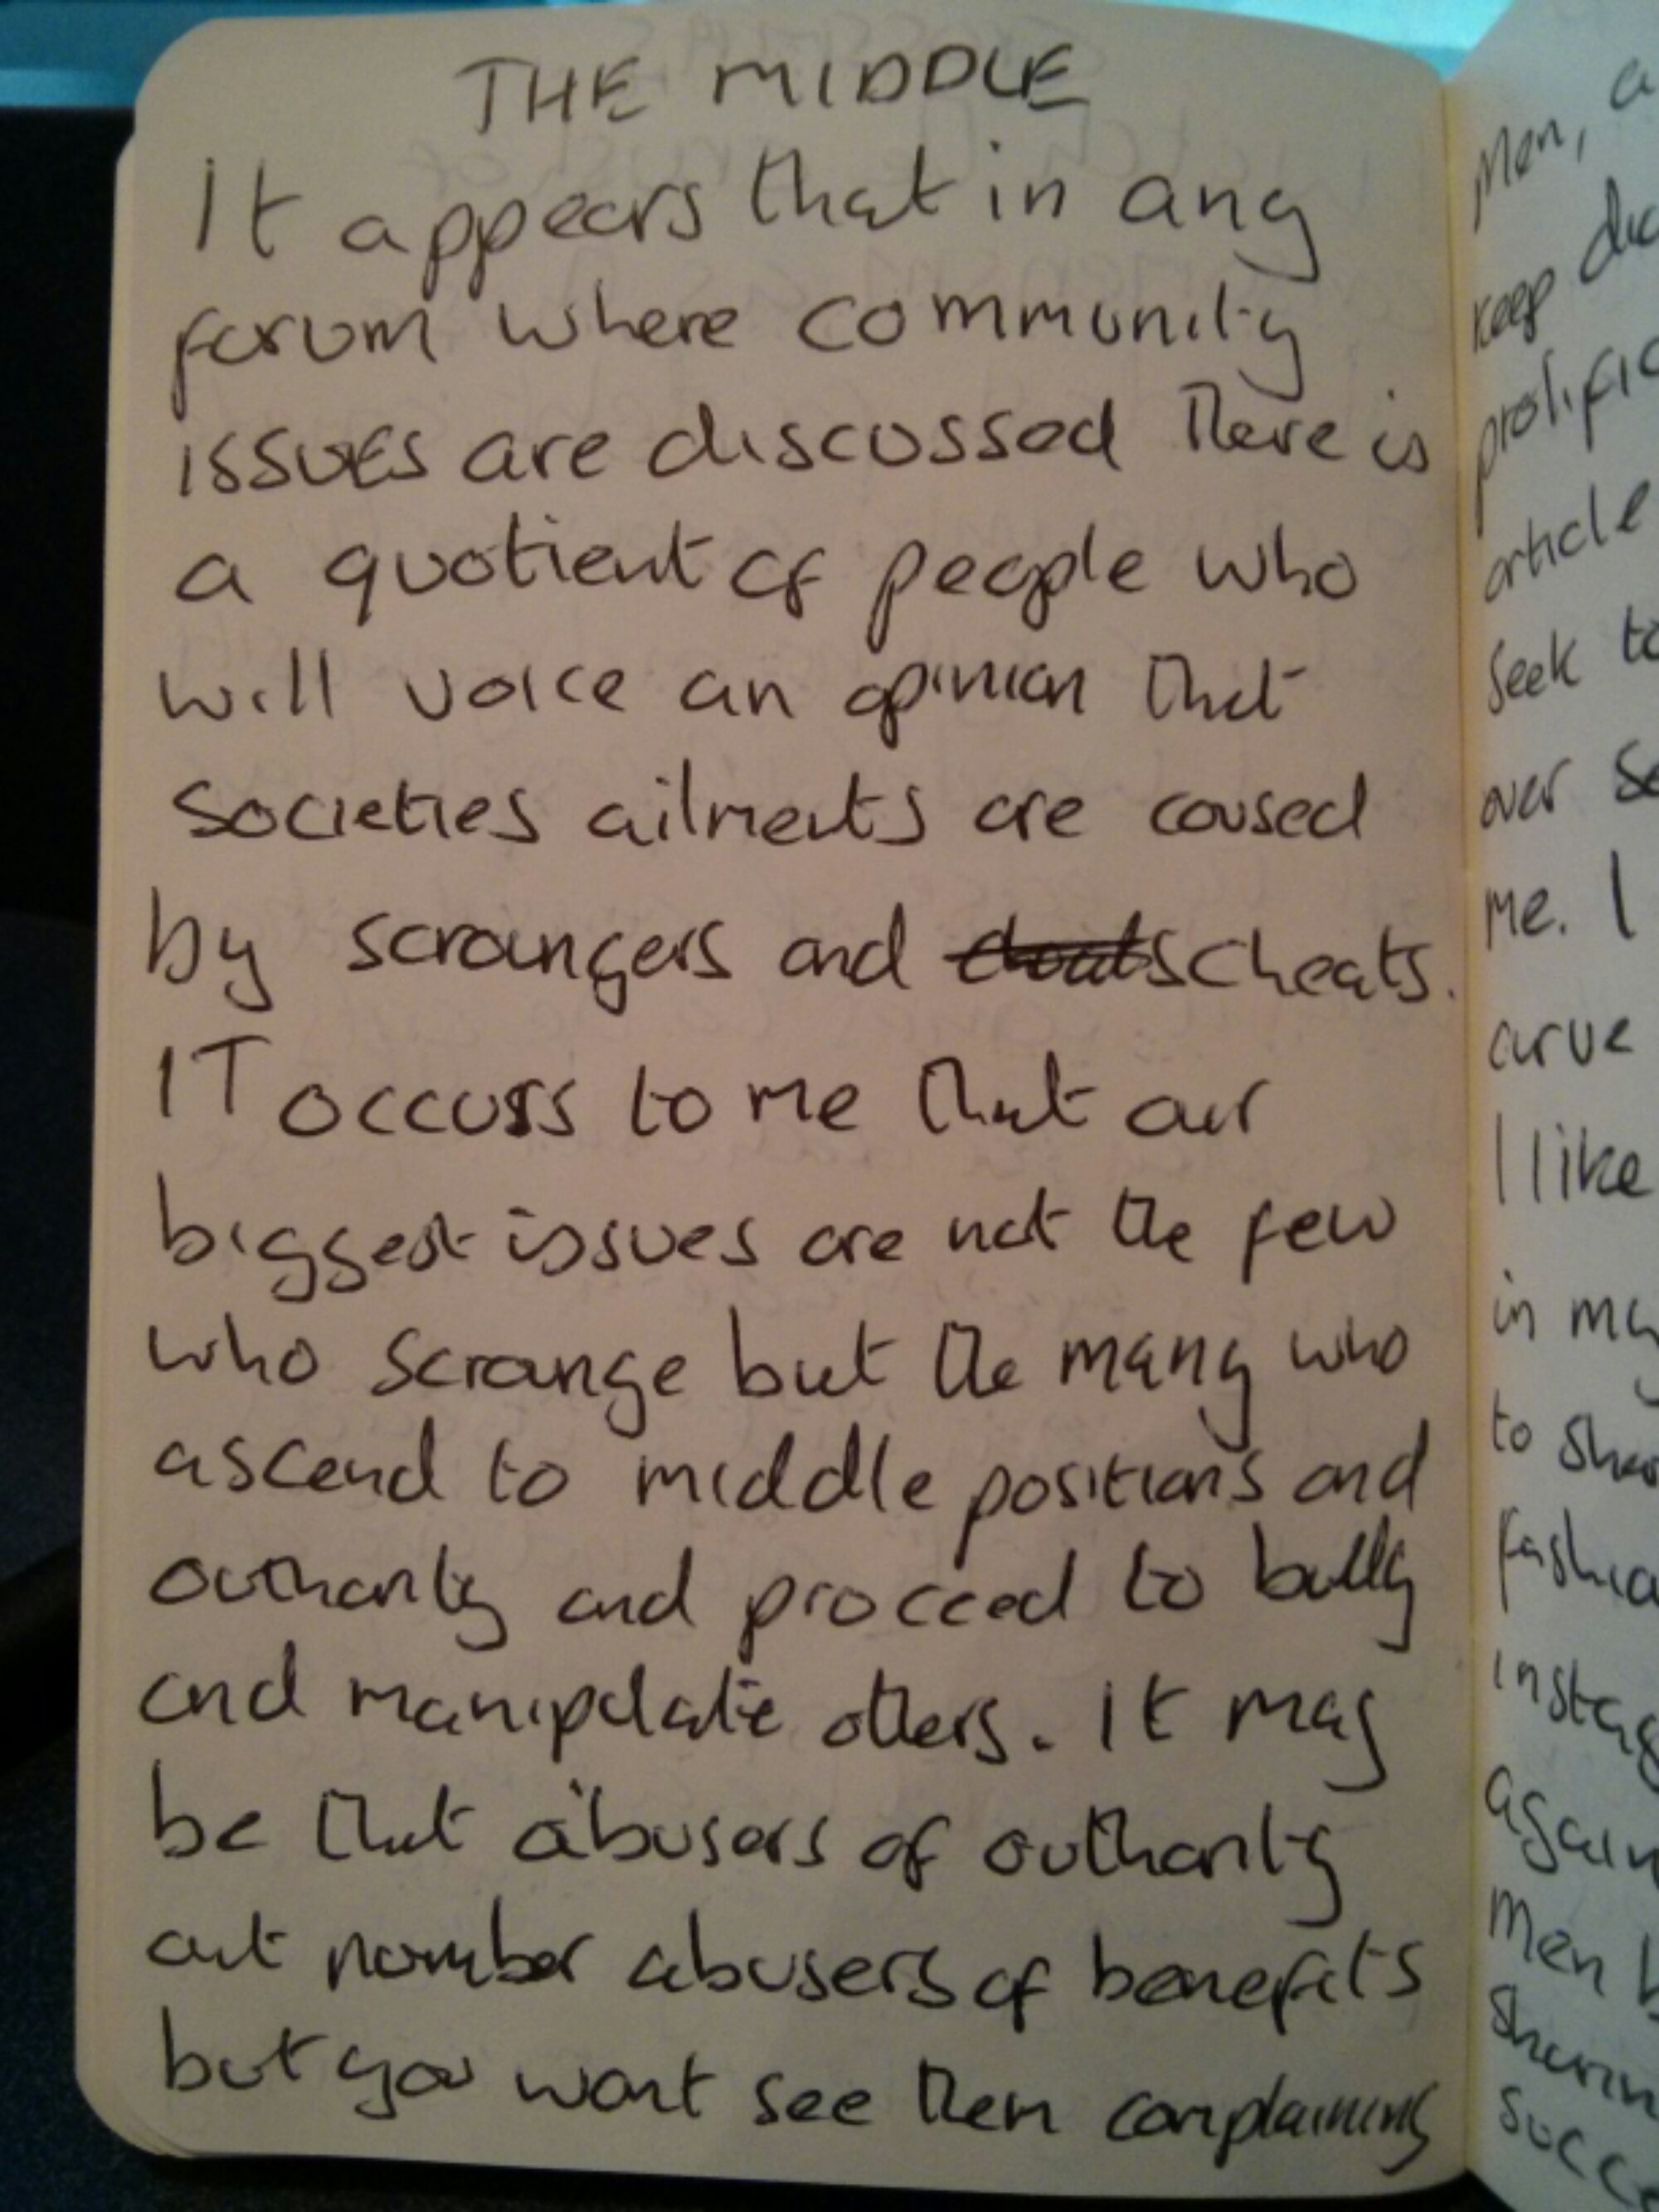 THE MIDDLE
It appears that in any
forum where community
issues are discussed there is
a quotient of people who
will voice an opinion that
societies ailments are caused
by scroungers and cheats.
IT occurs to me that our
biggest issues are not the few
who scrounge but the many who
ascend to middle positions and
authority and proceed to bully
and manipulate others. It may
be that abusers of authority
out number abusers of benefits
but you wont see them complaining
Men, a
keep
prolific
article
seek to
over
me. I
curve
I like
in my
to
again
Men